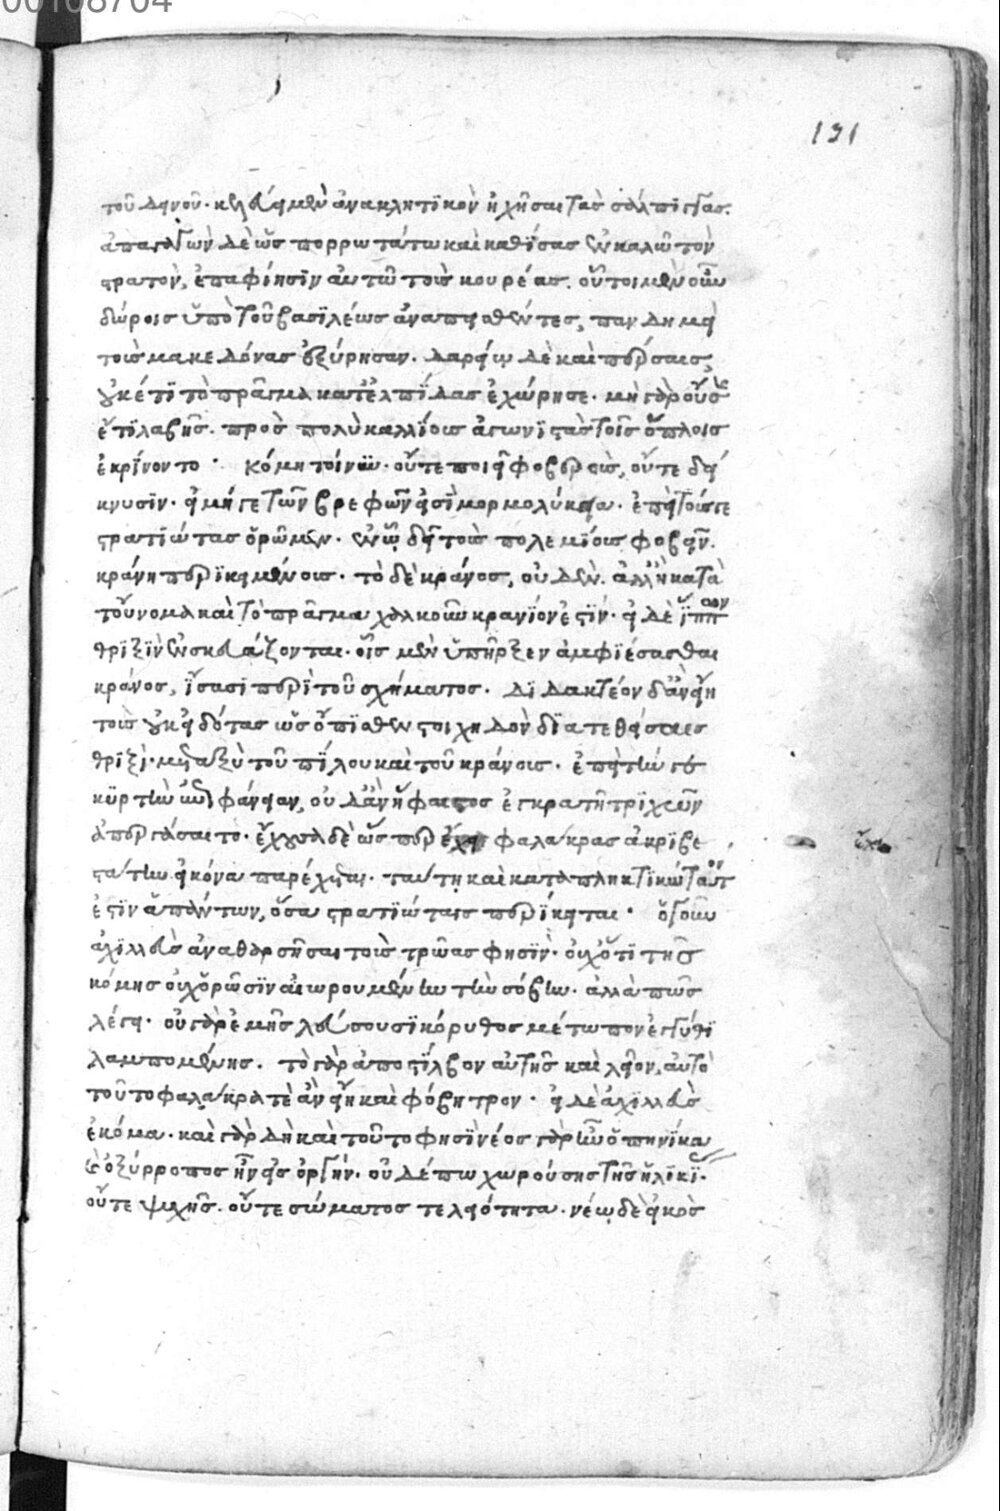 00108704
131
τοῦ δεινοῦ. κελεύει μὲν ἀνακλητικὸν ἠχῆσαι τὰς σάλπιγγας.
ἀπαγαγὼν δὲ ὡς πορρωτάτω καὶ καθίσας ἐν καλῶ τὸν
στρατὸν, ἐπαφίησιν αὐτῶ τοὺς κουρέας. οὗτοι μὲν οὖν
δώροις ὑπὸ τοῦ βασιλέως ἀναπεισθέντες, πανδημεὶ
τοὺς μακεδόνας ἐξύρησαν. δαρείω δὲ καὶ πέρσαις,
οὐκέτι τὸ πρᾶγμα κατ' ἐλπίδας ἐχώρησε. μὴ γὰρ οὔσης
ἔτι λαβῆς. πρὸς πολὺ καλλίους ἀγωνιστὰς τοῖς ὅπλοις
ἐκρίνοντο. κόμη τοίνυν. οὔτε ποιεῖ φοβεροὺς, οὔτε δεί
κνυσιν. εἰ μή γε τῶν βρεφῶν εἰσὶ μορμολύκεια. ἐπεὶ τούς γε
στρατιώτας ὁρῶμεν. ἐν ᾧ δεῖ τοὺς πολεμίους φοβεῖν.
κράνη περικειμένους. τὸ δὲ κράνος, οὐδὲν. ἀλλ' ἢ κατὰ
τοὔνομα καὶ τὸ πρᾶγμα χαλκοῦν κρανίον ἐστίν. εἰ δὲ ἵππων
θριξὶν ἐνσκευάζονται. οἷς μὲν ὑπῆρξεν ἀμφιέσασθαι
κράνος, ἴσασι περὶ τοῦ σχήματος. διδακτέον δ' ἂν εἴη
τοὺς οὐκ εἰδότας ὡς ὄπισθεν στοιχηδὸν διατεθείσαις
θριξὶ. μεταξὺ τοῦ πίλου καὶ τοῦ κράνους. ἐπεὶ τήν γε
κυρτὴν ἐπιφάνειαν, οὐδ' ἂν ἥφαιστος ἐγκρατῆ τριχῶν
ἀπεργάσαιτο. ἔχουσα δὲ ὡς περ ἔχει φαλάκρας ἀκριβε
στάτην εἰκόνα παρέχεται. ταύτη καὶ καταπληκτικώτατόν
ἐστιν ἁπάντων, ὅσα στρατιώταις περίκειται. ὅ γ' οὖν
ἀχιλλεὺς ἀναθαρσῆσαι τοὺς τρῶας φησὶν. οὐχ ὅτι τῆς
κόμης οὐχ ὁρῶσιν αἰωρουμένην τὴν σόβην. ἀλλὰ πῶς
λέγει. οὐ γὰρ ἐμῆς λεύσουσι κόρυθος μέτωπον ἐγγύθι
λαμπομένης. τὸ γὰρ ἀποστίλβον αὐτῆς καὶ λεῖον, αὐτὸ
τοῦτο φαλακρά τε ἂν εἴη καὶ φόβητρον. εἰ δὲ ἀχιλλεὺς
ἐκόμα. καὶ γὰρ δὴ καὶ τοῦτο φησὶ νέος γὰρ ἦν ὁπηνίκα
ὀξύρροπος ἦν εἰς ὀργήν. οὐδέπω χωρούσης τῆς ἡλικί.
οὔτε ψυχῆς. οὔτε σώματος τελειότητα. νέω δὲ εἰκὸς
ἔχει